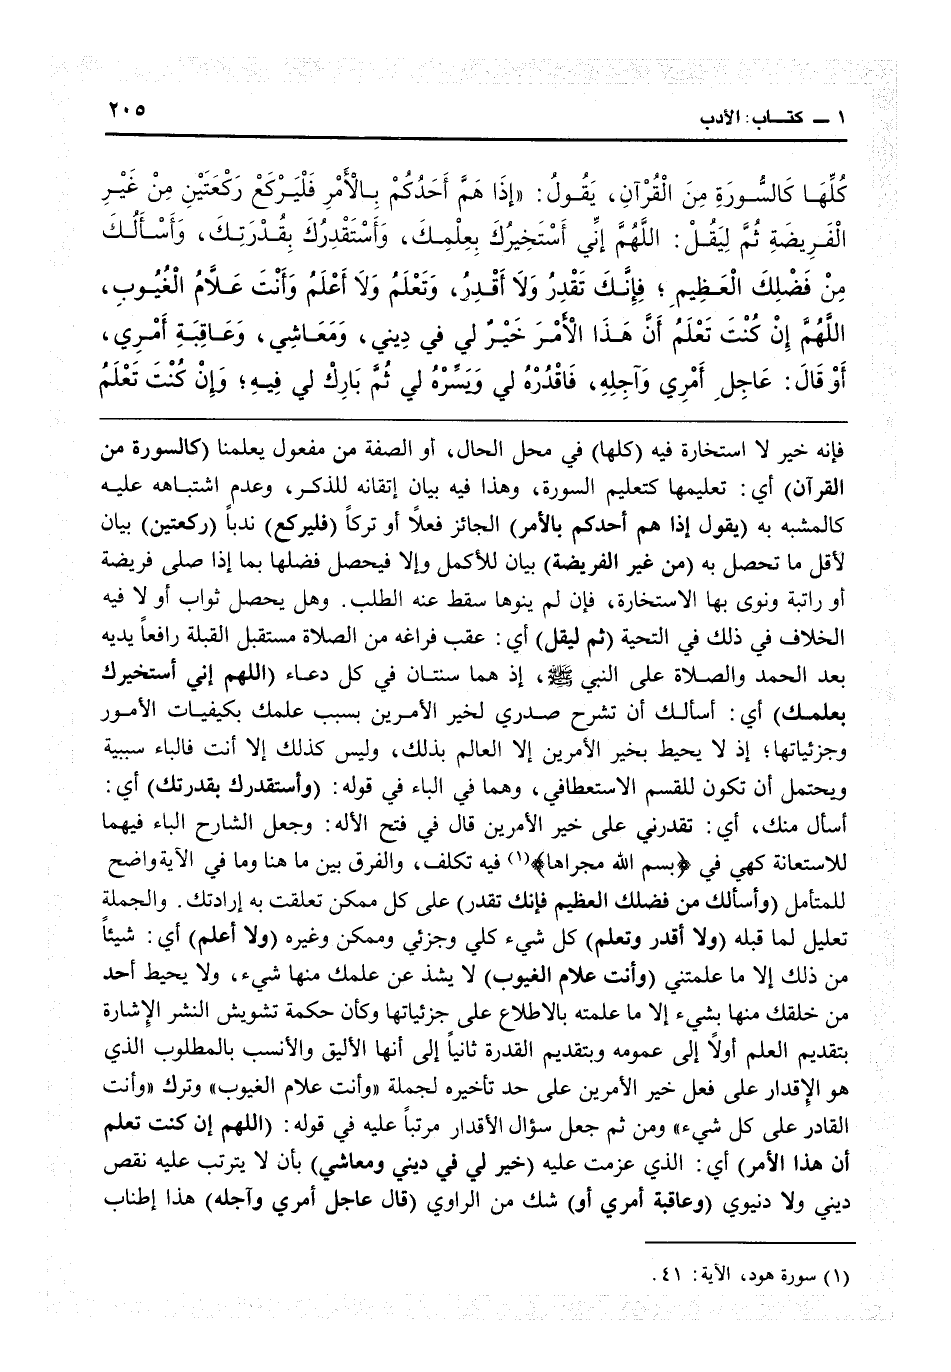 ١ ــ كتـــاب: الأدب
٢٠٥
كُلِّهَـا كَالسُّـورَةِ مِنَ الْقُرْآنِ، يَقُـولُ: «إِذَا هَمَّ أَحَدُكُمْ بِـالْأَمْرِ فَلْيَـرْكَعْ رَكْعَتَيْنِ مِنْ غَيْـرِ
الْفَـرِيضَةِ ثُمَّ لِيَقُـلْ: اللَّهُمَّ إِنِّي أَسْتَخِيرُكَ بِعِلْمِـكَ، وَأَسْتَقْدِرُكَ بِقُـدْرَتِـكَ، وَأَسْـأَلُـكَ
مِنْ فَضْلِكَ الْعَـظِيمِ؛ فَإِنَّـكَ تَقْدِرُ وَلَا أَقْـدِرُ، وَتَعْلَمُ وَلَا أَعْلَمُ وَأَنْتَ عَـلَّامُ الْغُيُـوبِ،
اللَّهُمَّ إِنْ كُنْتَ تَعْلَمُ أَنَّ هَـذَا الْأَمْـرَ خَيْـرٌ لي في دِيني، وَمَعَـاشِي، وَعَـاقِبَـةِ أَمْـرِي،
أَوْ قَالَ: عَاجِلِ أَمْرِي وَآجِلِهِ، فَاقْدُرْهُ لي وَيَسِّرْهُ لي ثُمَّ بَارِكْ لي فِيـهِ؛ وَإِنْ كُنْتَ تَعْلَمُ
فإنه خير لا استخارة فيه (كلها) في محل الحال، أو الصفة من مفعول يعلمنا (كالسورة من
القرآن) أي: تعليمها كتعليم السورة، وهذا فيه بيان إتقانه للذكـر، وعدم اشتبـاهه عليـه
كالمشبه به (يقول إذا هم أحدكم بالأمر) الجائز فعلاً أو تركاً (فليركع) ندباً (ركعتين) بيان
لأقل ما تحصل به (من غير الفريضة) بيان للأكمل وإلا فيحصل فضلها بما إذا صلى فريضة
أو راتبة ونوى بها الاستخارة، فإن لم ينوها سقط عنه الطلب. وهل يحصل ثواب أو لا فيه
الخلاف في ذلك في التحية (ثم ليقل) أي: عقب فراغه من الصلاة مستقبل القبلة رافعاً يديه
بعد الحمد والصـلاة على النبي ﷺ، إذ هما سنتـان في كل دعـاء (اللهم إني أستخيرك
بعلمـك) أي: أسألـك أن تشرح صـدري لخير الأمـرين بسبب علمك بكيفيـات الأمـور
وجزئياتها؛ إذ لا يحيط بخير الأمرين إلا العالم بذلك، وليس كذلك إلا أنت فالباء سببية
ويحتمل أن تكون للقسم الاستعطافي، وهما في الباء في قوله: (وأستقدرك بقدرتك) أي:
أسأل منك، أي: تقدرني على خير الأمرين قال في فتح الأله: وجعل الشارح الباء فيهما
للاستعانة كهي في ﴿بسم الله مجراها﴾(١) فيه تكلف، والفرق بين ما هنا وما في الآية واضح
للمتأمل (وأسألك من فضلك العظيم فإنك تقدر) على كل ممكن تعلقت به إرادتك. والجملة
تعليل لما قبله (ولا أقدر وتعلم) كل شيء كلي وجزئي وممكن وغيره (ولا أعلم) أي: شيئاً
من ذلك إلا ما علمتني (وأنت علام الغيوب) لا يشذ عن علمك منها شيء، ولا يحيط أحد
من خلقك منها بشيء إلا ما علمته بالاطلاع على جزئياتها وكأن حكمة تشويش النشر الإشارة
بتقديم العلم أولاً إلى عمومه وبتقديم القدرة ثانياً إلى أنها الأليق والأنسب بالمطلوب الذي
هو الإقدار على فعل خير الأمرين على حد تأخيره لجملة «وأنت علام الغيوب» وترك «وأنت
القادر على كل شيء» ومن ثم جعل سؤال الأقدار مرتباً عليه في قوله: (اللهم إن كنت تعلم
أن هذا الأمر) أي: الذي عزمت عليه (خير لي في ديني ومعاشي) بأن لا يترتب عليه نقص
ديني ولا دنيوي (وعاقبة أمري أو) شك من الراوي (قال عاجل أمري وآجله) هذا إطناب
(١) سورة هود، الآية: ٤١.